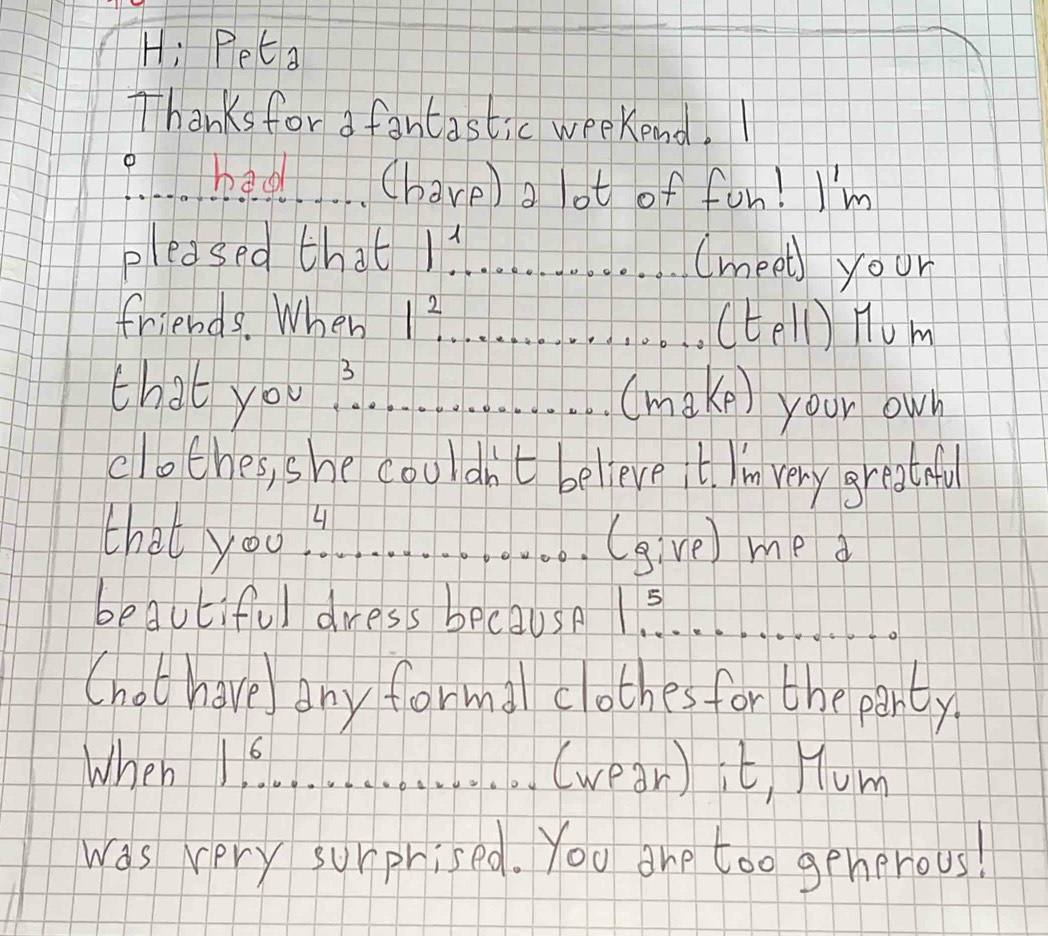 Hi Peta
Thanks for a fantastic weekend. I
0 ..... had ..... (have) a lot of fun! I'm
pleased that I 1 .............. (meet) your
friends. When I 2 ................ (tell) Mum
that you 3 ................ (make) your own
clothes, she couldn't believe it. I'm very greatful
that you 4 ................ (give) me a
beautiful dress because I 5 ..............
(not have) any formal clothes for the party.
When I 6 ................ (wear) it, Mum
was very surprised. You are too generous!